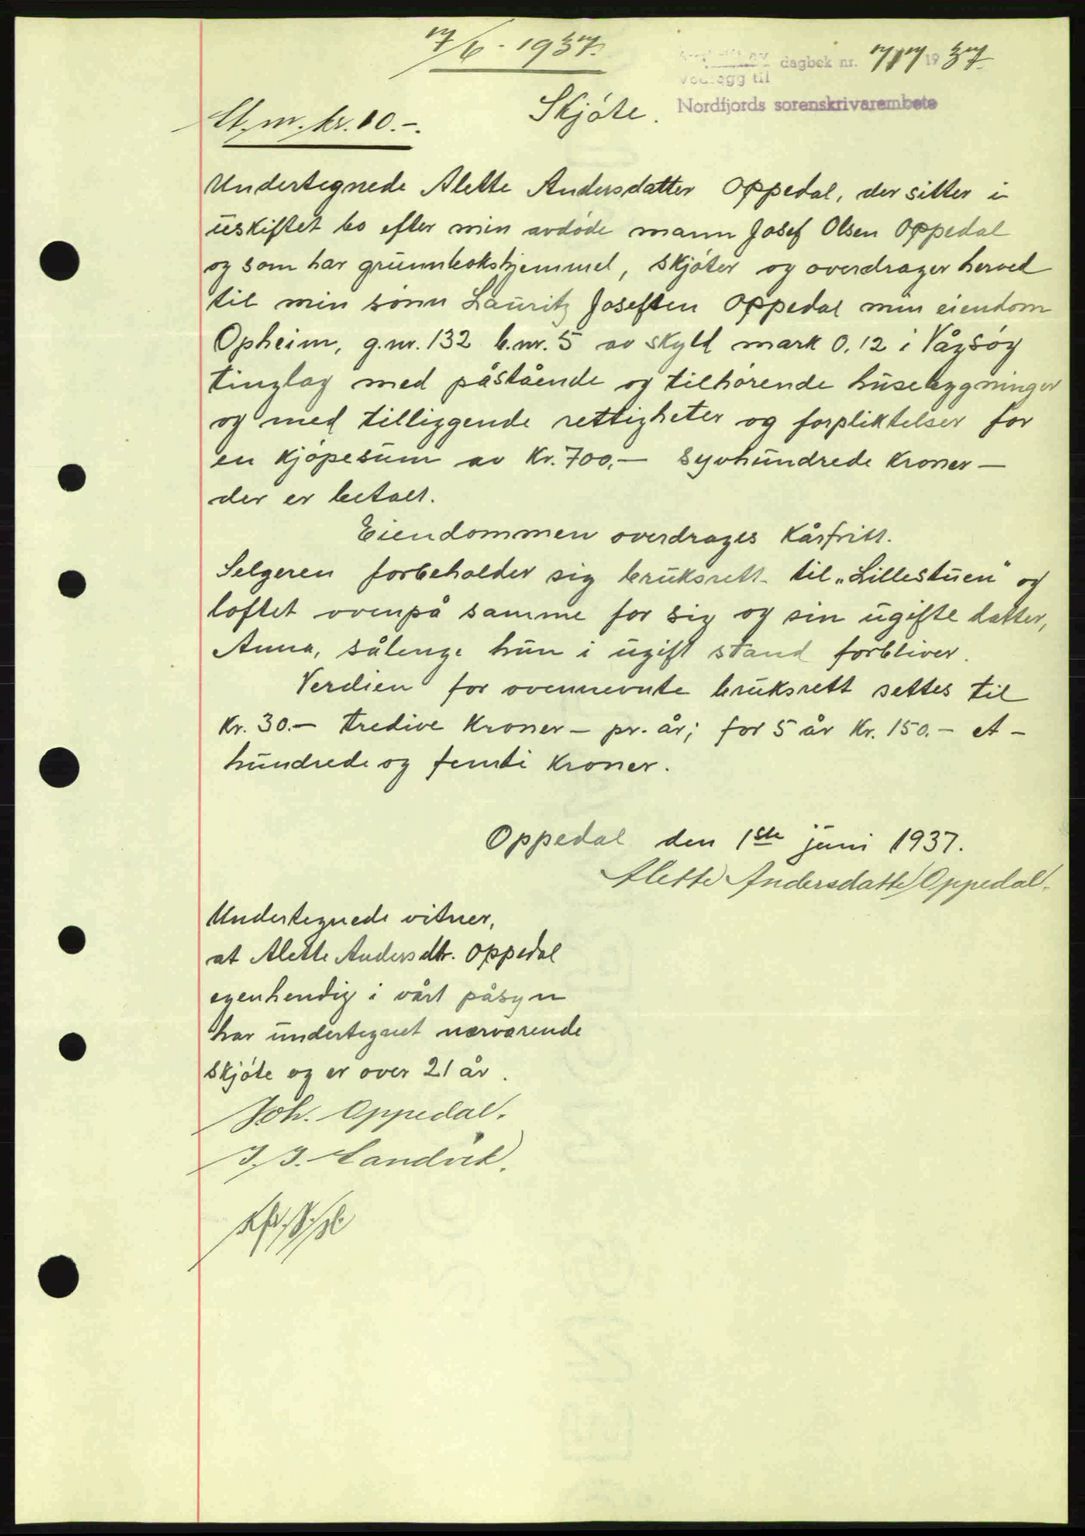 7/6 - 1937.
dagbok nr. 717 1937
Vedlegg til
Nordfjords sorenskrivarembete
St. m. kr. 10.-.
Skjøte.
Undertegnede Alette Andersdatter Oppedal, der sitter i
uskiftet bo efter min avdøde mann Josef Olsen Oppedal
og som har grunnbokshjemmel, skjøter og overdrager herved
til min sønn Lauritz Josefsen Oppedal min eiendom
Opheim, g.nr. 132 b.nr. 5 av skyld mark 0.12 i Vågsøy
tinglag med påstående og tilhørende husebygninger
og med tilliggende rettigheter og forpliktelser for
en kjøpesum av Kr. 700,- syvhundrede kroner -
der er betalt.
Eiendommen overdrages kårfritt.
Selgeren forbeholder sig bruksrett til „Lillestuen" og
loftet ovenpå samme for sig og sin ugifte datter,
Anna, sålenge hun i ugift stand forbliver.
Verdien for ovennevnte bruksrett settes til
Kr. 30.- tredive kroner - pr. år; for 5 år Kr. 150.- et -
hundrede og femti kroner.
Oppedal den 1ste juni 1937.
Alette Andersdatter Oppedal.
Undertegnede vitner,
at Alette Andersdtr. Oppedal
egenhendig i vårt påsyn
har undertegnet nærværende
skjøte og er over 21 år.
Joh. Oppedal.
J. J. Sandvik.